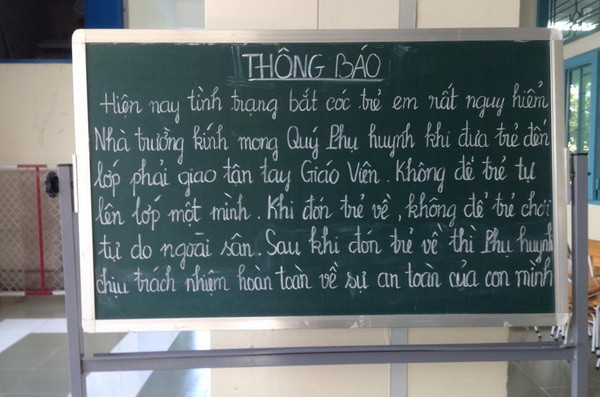 THÔNG BÁO
Hiện nay tình trạng bắt cóc trẻ em rất nguy hiểm
Nhà trường kính mong Quý Phụ huynh khi đưa trẻ đến
lớp phải giao tận tay Giáo Viên. Không để trẻ tự
lên lớp một mình. Khi đón trẻ về, không để trẻ chơi
tự do ngoài sân. Sau khi đón trẻ về thì Phụ huynh
chịu trách nhiệm hoàn toàn về sự an toàn của con mình